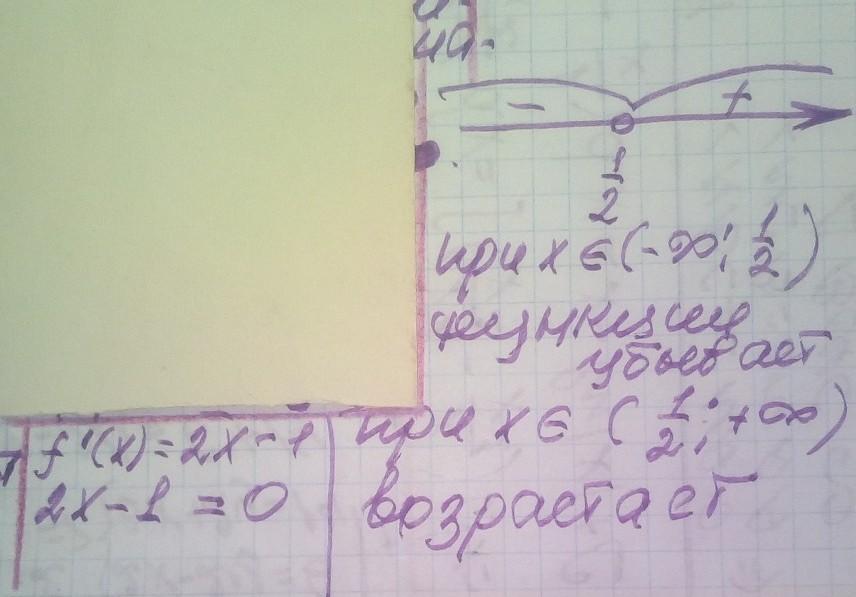 ид.
- +
1/2
при x ∈ (-∞; 1/2)
функции
убывает
при x ∈ (1/2; +∞)
возрастает
f'(x) = 2x - 1
2x - 1 = 0